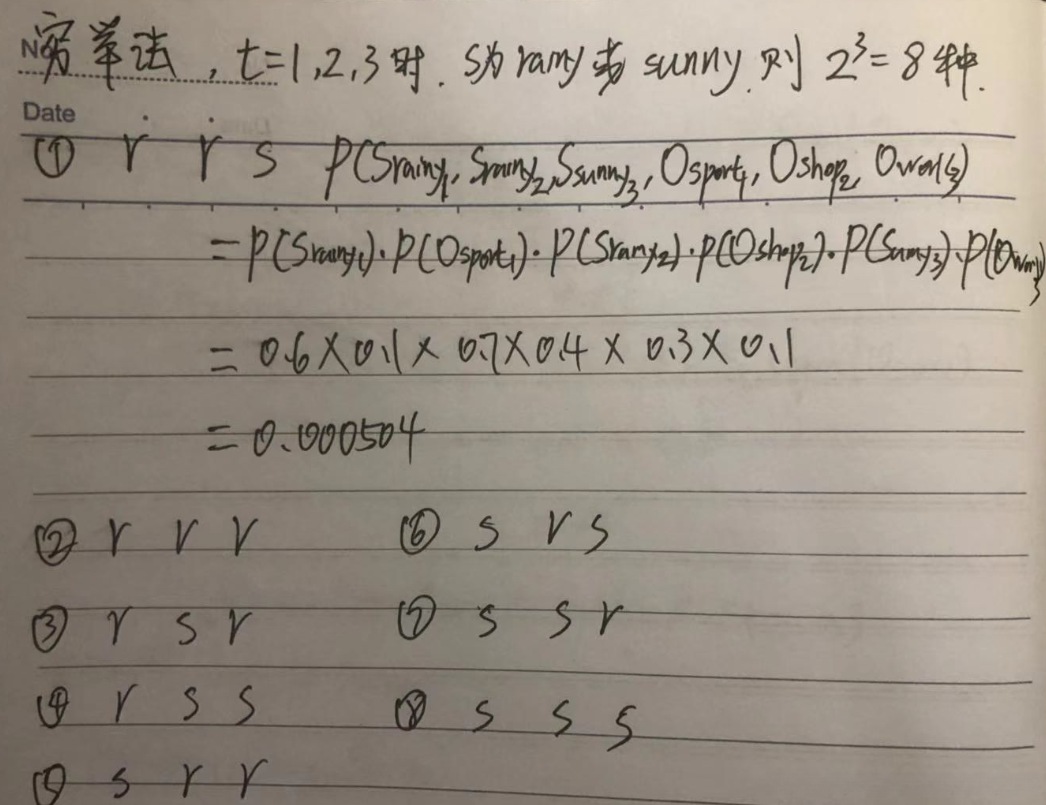 No
穷举法, t=1,2,3时. S为rainy或sunny.则 2³=8种.
Date
① r r s P(Srainy₁, Srainy₂, Ssunny₃, Osport₁, Oshop₂, Owork₃)
= P(Srainy₁)·P(Osport₁)·P(Srainy₂)·P(Oshop₂)·P(Sunny₃)·P(Owork₃)
= 0.6×0.1×0.7×0.4×0.3×0.1
= 0.000504
② r r r ⑥ s r s
③ r s r ⑦ s s r
④ r s s ⑧ s s s
⑤ s r r